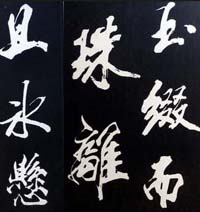 玉綴而
珠離
且氷懸